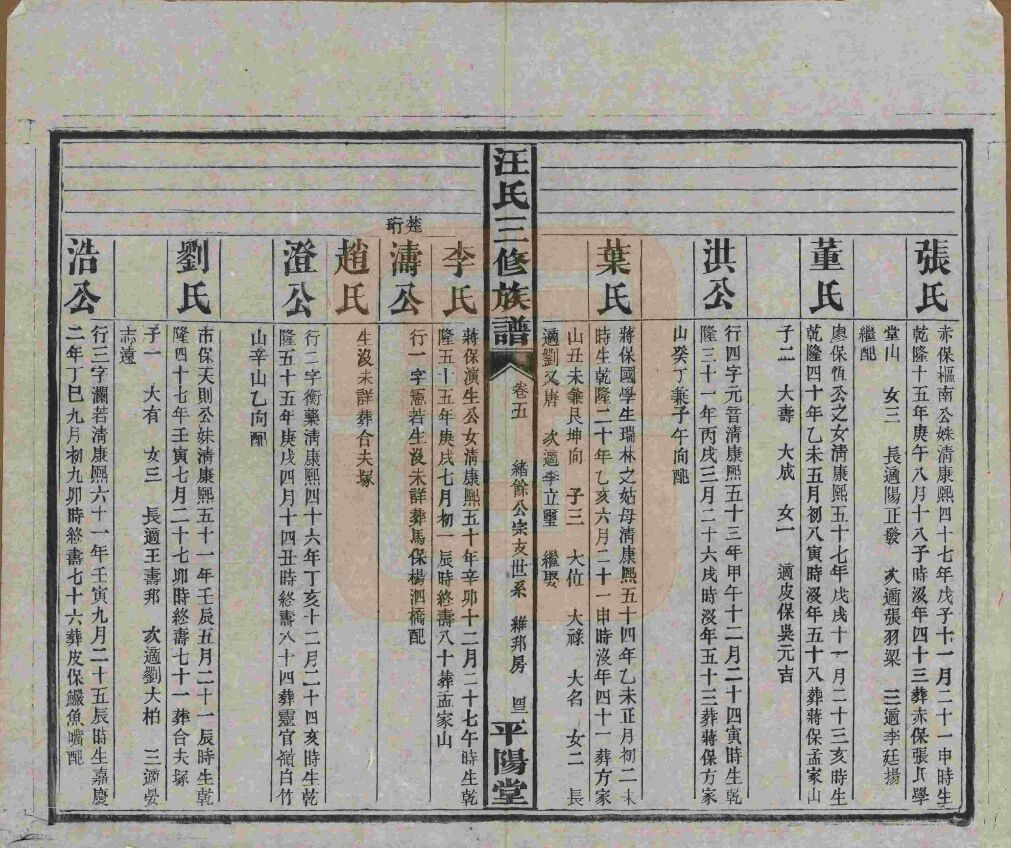 張氏
赤保樞南公姝清康熙四十七年戊子十一月二十一申時生
乾隆十五年庚午八月十八子時沒年四十三葬赤保張爪學
堂山 女三 長適陽正發 次適張羽梁 三適李廷揚
繼配
董氏
廖保恆公之女清康熙五十七年戊戌十一月二十三亥時生
乾隆四十年乙未五月初八寅時沒年五十八葬蔣保孟家山
子二 大壽 大成 女一 適皮保吳元吉
洪公
行四字元音清康熙五十三年甲午十二月二十四寅時生乾
隆三十一年丙戌三月二十六戌時沒年五十三葬蔣保方家
山癸丁兼子午向配
葉氏
蔣保國學生瑞林之姑母清康熙五十四年乙未正月初二未
時生乾隆二十年乙亥六月二十一申時沒年四十一葬方家
山丑未兼艮坤向 子三 大位 大祿 大名 女二 長
適劉又唐 次適李立璽 繼娶
汪氏三修族譜
卷五
緒餘公宗支世系 維邦房
平陽堂
李氏
蔣保演生公女清康熙五十年辛卯十二月二十七午時生乾
隆五十五年庚戌七月初一辰時終壽八十葬孟家山
楚珩
濤公
行一字憲若生沒未詳葬馬保楊泗橋配
趙氏
生沒未詳葬合夫塚
澄公
行二字衡藥清康熙四十六年丁亥十二月二十四亥時生乾
隆五十五年庚戌四月十四丑時終壽八十四葬靈官嶺自竹
山辛山乙向配
劉氏
市保天則公妹清康熙五十一年壬辰五月二十一辰時生乾
隆四十七年壬寅七月二十七卯時終壽七十一葬合夫塚
子一 大有 女三 長適王壽邦 次適劉大柏 三適晏
志遠
浩公
行三字瀾若清康熙六十一年壬寅九月二十五辰時生嘉慶
二年丁巳九月初九卯時終壽七十六葬皮保鱖魚嘴配